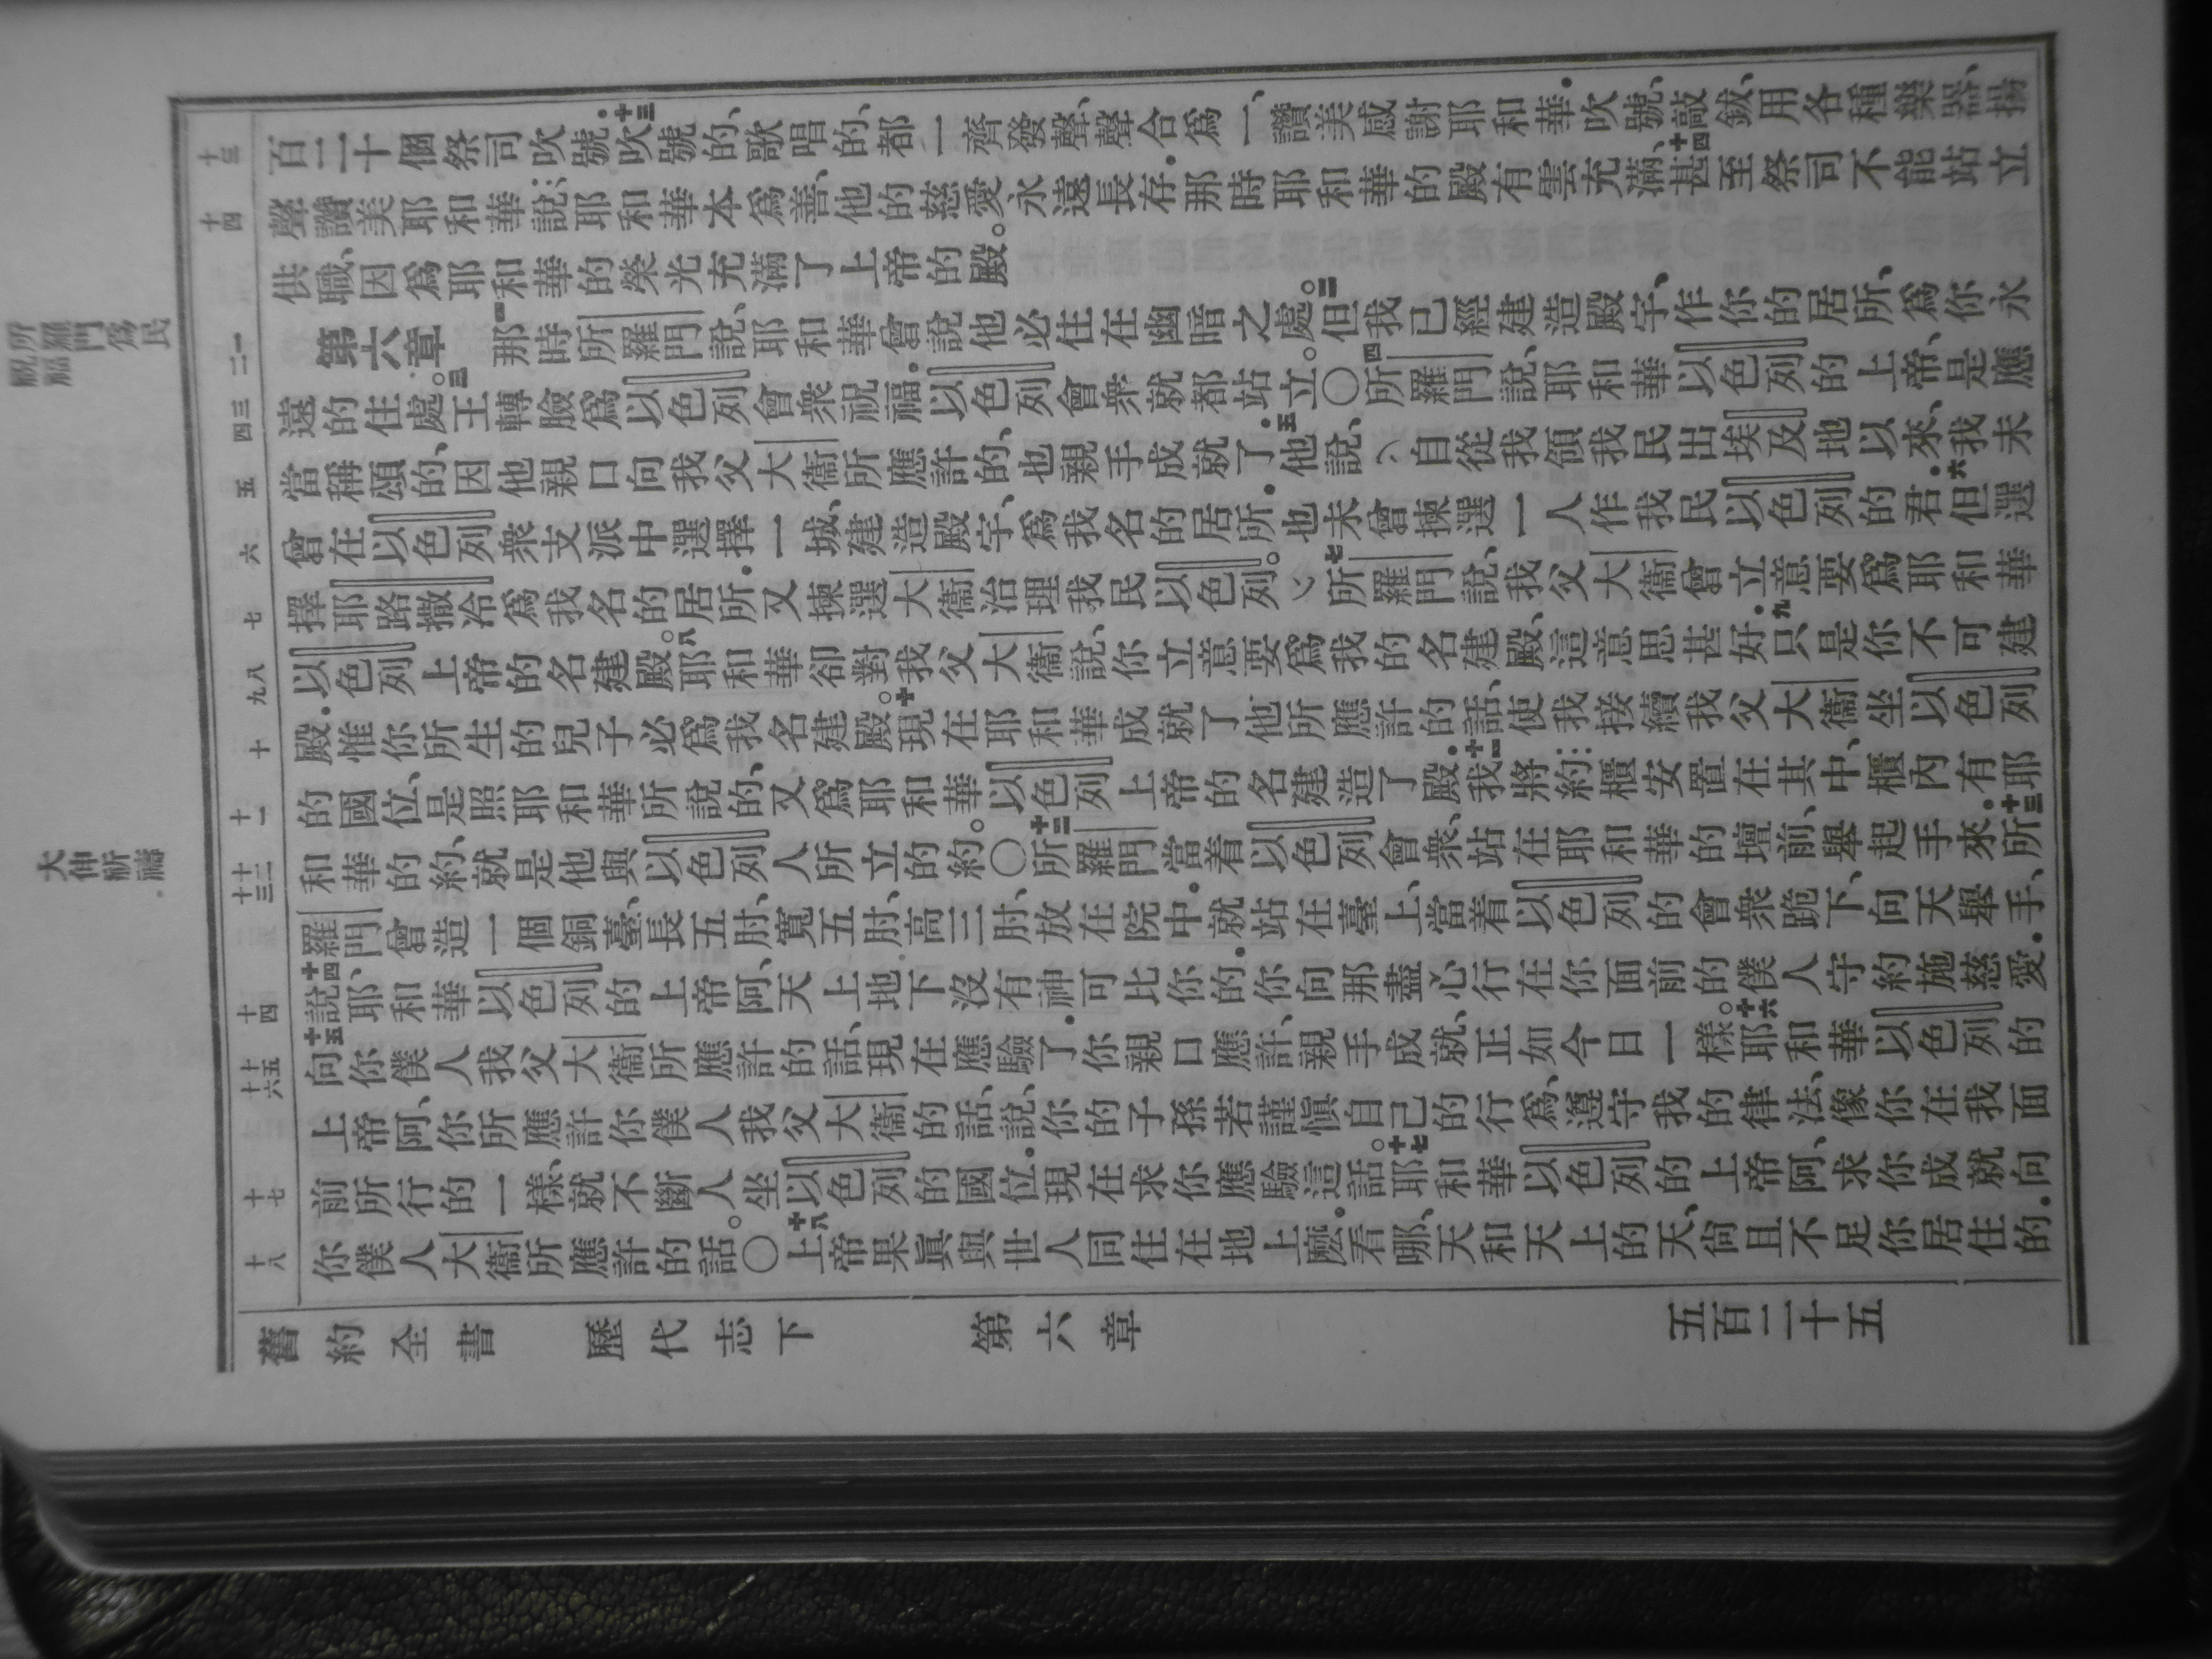 百二十個祭司吹號。十三吹號的、歌唱的、都一齊發聲、聲合爲一、讚美感謝耶和華．吹號、敲鈸、用各種樂器、揚
聲讚美耶和華說：耶和華本爲善、他的慈愛永遠長存．那時耶和華的殿有雲充滿、十四甚至祭司不能站立
供職、因爲耶和華的榮光充滿了上帝的殿。
第六章 一那時所羅門說、耶和華曾說他必住在幽暗之處。二但我已經建造殿宇、作你的居所、爲你永
遠的住處。三王轉臉爲以色列會衆祝福．以色列會衆就都站立。○四所羅門說、耶和華以色列的上帝、是應
當稱頌的、因他親口向我父大衞所應許的、也親手成就了．五他說、自從我領我民出埃及地以來、我未
曾在以色列衆支派中選擇一城、建造殿宇、爲我名的居所．也未曾揀選一人作我民以色列的君．六但選
擇耶路撒冷爲我名的居所．又揀選大衞治理我民以色列。七所羅門說、我父大衞曾立意要爲耶和華
以色列上帝的名建殿。八耶和華卻對我父大衞說、你立意要爲我的名建殿、這意思甚好．九只是你不可建
殿．惟你所生的兒子必爲我名建殿。十現在耶和華成就了他所應許的話、使我接續我父大衞坐以色列
的國位、是照耶和華所說的、又爲耶和華以色列上帝的名建造了殿．十一我將約櫃安置在其中、櫃內有耶
和華的約、就是他與以色列人所立的約。○十二所羅門當着以色列會衆、站在耶和華的壇前、舉起手來．十三所
羅門曾造一個銅臺、長五肘、寬五肘、高三肘、放在院中．就站在臺上、當着以色列的會衆跪下、向天舉手、
十四說、耶和華以色列的上帝阿、天上地下沒有神可比你的．你向那盡心行在你面前的僕人守約施慈愛．
十五向你僕人我父大衞所應許的話、現在應驗了．你親口應許、親手成就、正如今日一樣。十六耶和華以色列的
上帝阿、你所應許你僕人我父大衞的話、說、你的子孫若謹愼自己的行爲、遵守我的律法、像你在我面
前所行的一樣、就不斷人坐以色列的國位．現在求你應驗這話。十七耶和華以色列的上帝阿、求你成就向
你僕人大衞所應許的話。○十八上帝果眞與世人同住在地上麼．看哪、天和天上的天、尙且不足你居住的．
舊約全書 歷代志下 第六章 五百二十五
十三
十四
一二
三四
五
六
七
八九
十
十一
十二十三
十四
十五十六
十七
十八
大伸祈禱